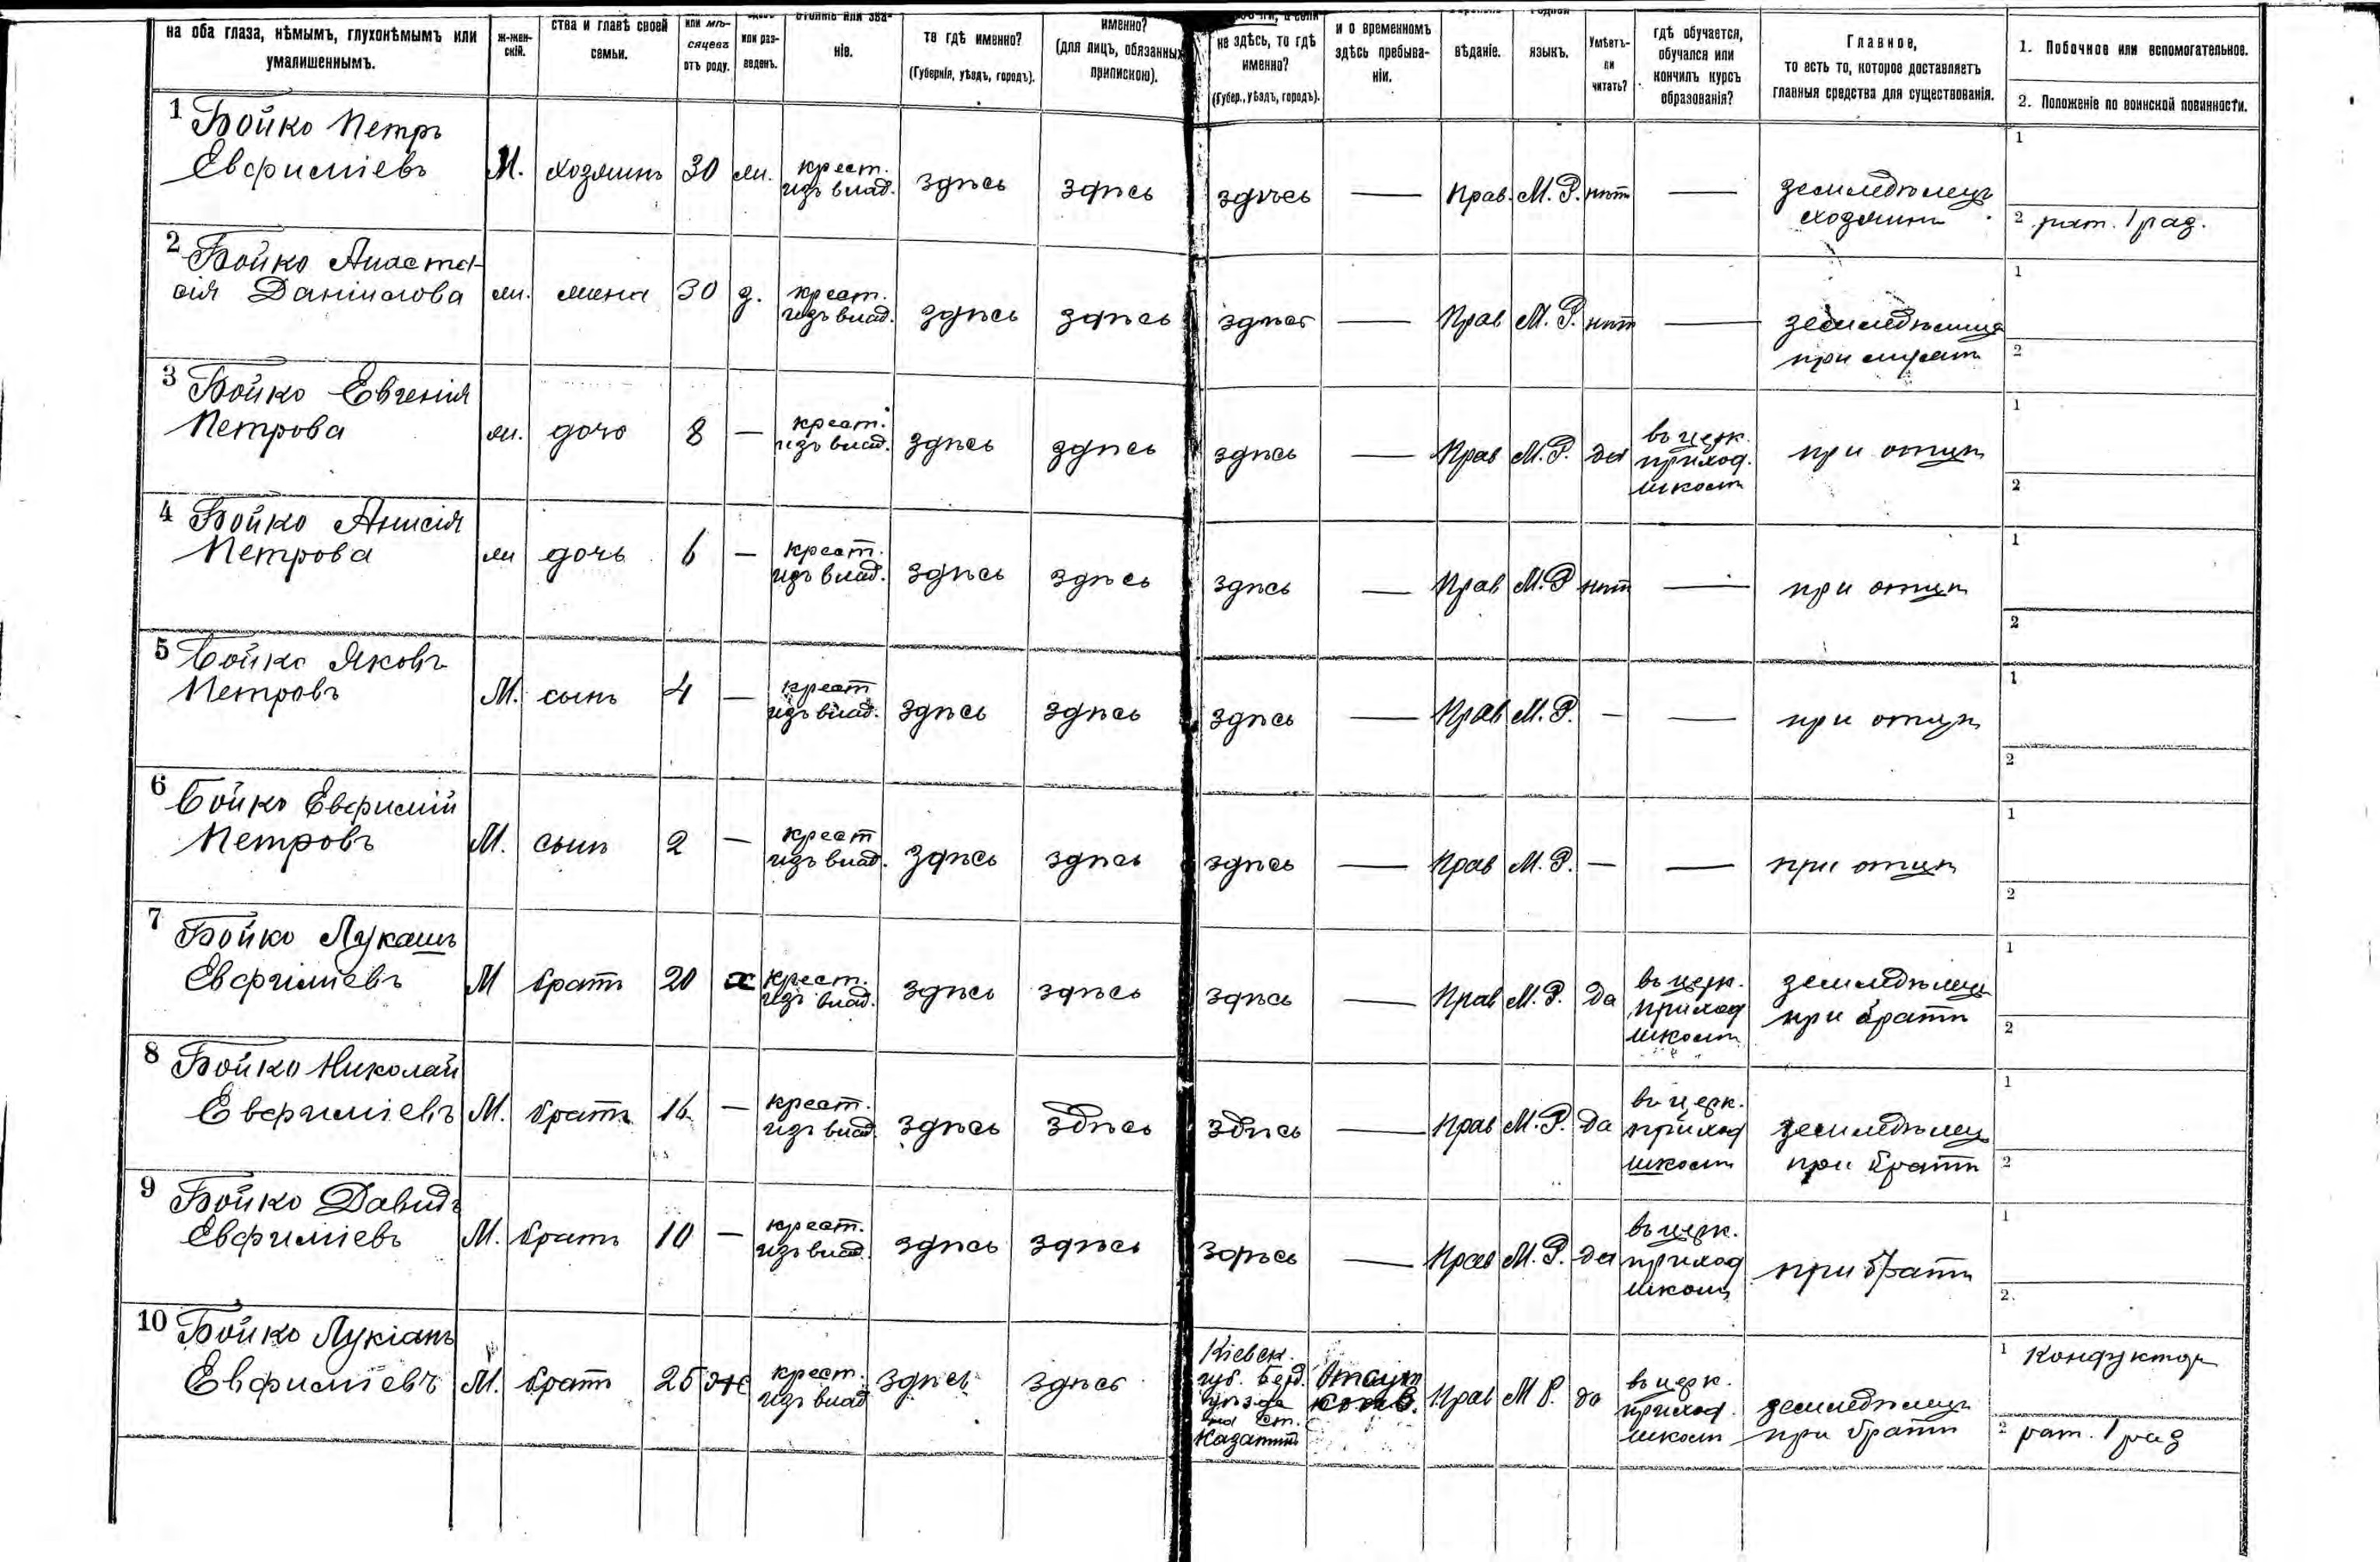 на оба глаза, нѣмымъ, глухонѣмымъ или
умалишеннымъ.
ж-жен-
скій.
ства и главѣ своей
семьи.
или мѣ-
сяцевъ
отъ роду.
или раз-
веденъ.
стояніе или зва-
ніе.
то гдѣ именно?
(Губернія, уѣздъ, городъ).
именно?
(для лицъ, обязанныхъ
припискою).
не здѣсь, то гдѣ
именно?
(Губер., уѣздъ, городъ).
и о временномъ
здѣсь пребыва-
ніи.
вѣданіе.
языкъ.
Умѣетъ-
ли
читать?
гдѣ обучается,
обучался или
кончилъ курсъ
образованія?
Главное,
то есть то, которое доставляетъ
главныя средства для существованія.
1. Побочное или вспомогательное.
2. Положеніе по воинской повинности.
1 Бойко Петръ
Евфиміевъ
М. хозяинъ 30 ж. крест.
изъ влад. здѣсь здѣсь здѣсь — Прав. М. Р. нѣтъ — земледѣлецъ
хозяинъ
1
2 рат. 1 раз.
2 Бойко Анаста-
сія Данилова
ж. жена 30 з. крест.
изъ влад. здѣсь здѣсь здѣсь — Прав М. Р. нѣтъ —
при
1
2
3 Бойко Евгенія
Петрова
ж. дочь 8 — крест.
изъ влад. здѣсь здѣсь здѣсь — Прав М. Р. да въ церк.
приход.
школѣ
при отцѣ
1
2
4 Бойко Анисія
Петрова
ж дочь 6 — крест.
изъ влад. здѣсь здѣсь здѣсь — Прав М. Р нѣтъ — при отцѣ
1
2
5 Бойко Яковъ
Петровъ
М. сынъ 4 — крест
изъ влад. здѣсь здѣсь здѣсь — Прав М. Р. — — при отцѣ
1
2
6 Бойко Евфимій
Петровъ
М. сынъ 2 — крест
изъ влад. здѣсь здѣсь здѣсь — Прав М. Р. — — при отцѣ
1
2
7 Бойко Лукашъ
Евфиміевъ
М братъ 20 х крест.
изъ влад. здѣсь здѣсь здѣсь — Прав М. Р. да въ церк.
приход
школѣ
земледѣлецъ
при братѣ
1
2
8 Бойко Николай
Евфиміевъ
М. братъ 16 — крест.
изъ влад. здѣсь здѣсь здѣсь — Прав М. Р. да въ церк.
приход
школѣ
земледѣлец
при братѣ
1
2
9 Бойко Давидъ
Евфиміевъ
М. братъ 10 — крест.
изъ влад. здѣсь здѣсь здѣсь — Прав М. Р. да въ церк.
приход
школѣ
при братѣ
1
2.
10 Бойко Лукіанъ
Евфиміевъ
М. братъ 25 ж крест.
изъ влад здѣсь здѣсь
Кіевск.
губ. Берд.
уѣзда
на ст.
Казатинѣ
Прав М Р. да въ церк.
приход.
школѣ
земледѣлецъ
при братѣ
1 Кондукторъ
2 рат. 1 раз